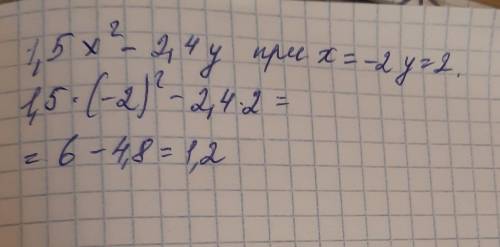 1,5 x² - 2,4 y при x = -2 y = 2.
1,5 · (-2)² - 2,4 · 2 =
= 6 - 4,8 = 1,2